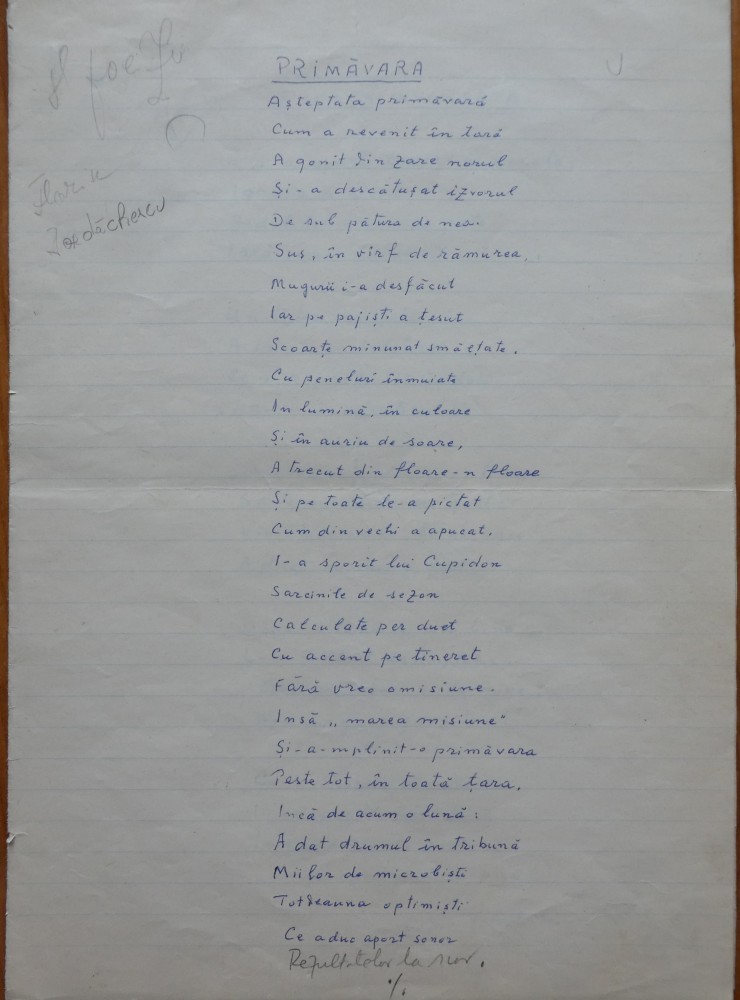 8 poezii
Florin
Iordăchescu
PRIMĂVARA
Așteptata primăvară
Cum a revenit în țară
A gonit din zare norul
Și-a descătușat izvorul
De sub pătura de nea.
Sus, în vîrf de rămurea,
Mugurii i-a desfăcut
Iar pe pajiști a țesut
Scoarțe minunat smălțate.
Cu peneluri înmuiate
In lumină, în culoare
Și în auriu de soare,
A trecut din floare-n floare
Și pe toate le-a pictat
Cum din vechi a apucat.
I-a sporit lui Cupidon
Sarcinile de sezon
Calculate per duet
Cu accent pe tineret
Fără vreo omisiune.
Insă „marea misiune"
Și-a-mplinit-o primăvara
Peste tot, în toată țara,
Incă de acum o lună:
A dat drumul în tribună
Miilor de microbiști
Totdeauna optimiști
Ce aduc aport sonor
Rezultatelor la scor.
./.